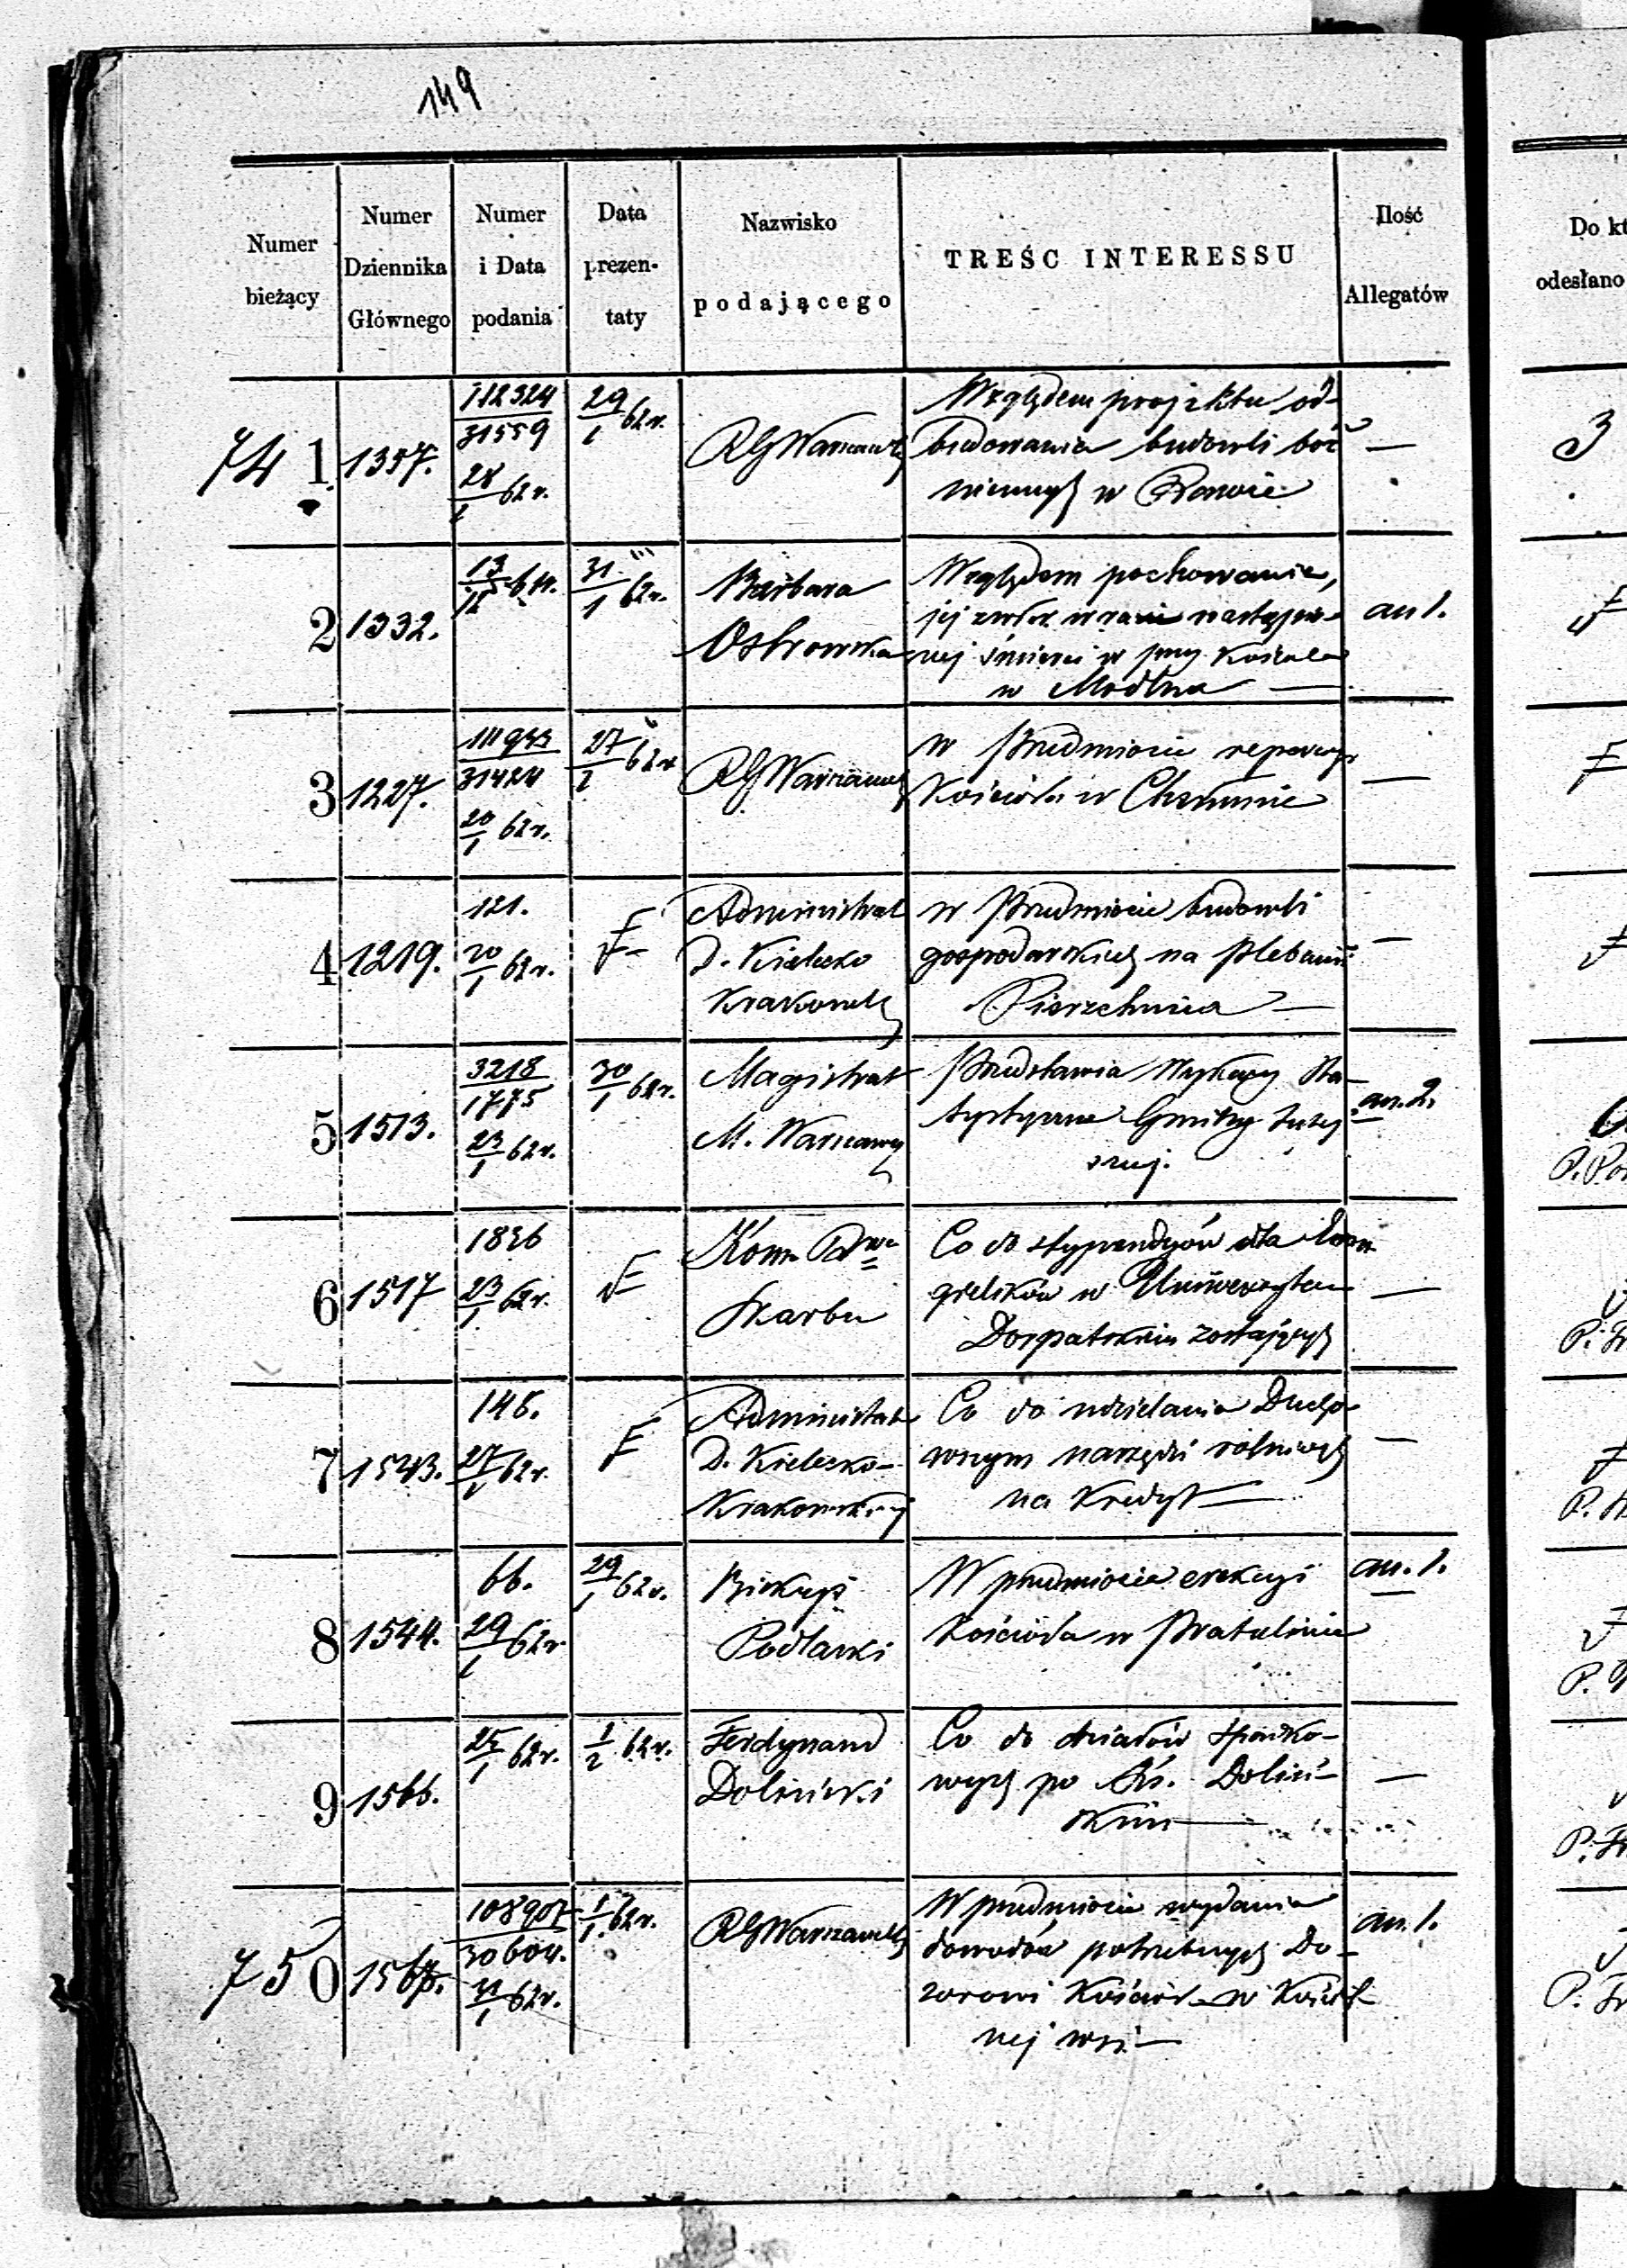 149
Numer bieżący
Numer Dziennika Głównego
Numer i Data podania
Data prezen-taty
Nazwisko podającego
TREŚĆ INTERESSU
Ilość Allegatów
Do kt
odesłano
741
1357.
112324
31559
28/1 62 r.
29/1 62 r.
RG Warszawsk
Względem projektu od-
budowania budowli boż-
nicznych w
—
3
2
1332.
13/12 61 r.
31/1 62 r.
Barbara
Ostrowska
Względem pochowania,
jej zwłok w razie nastąpio-
nej śmierci w przy Kościele
w Modlna —
an 1.
3
1227.
111943
31424
20/1 62 r.
27/1 62 r
RG Warszawsk
w przedmiocie reperacyi
Kościoła w
—
4
1219.
121.
20/1 62 r.
Administrat
D. Kielecko
Krakowsk
w przedmiocie budowli
gospodarskich na plebanii
Pierzchnica —
—
5
1513.
3218
1775
23/1 62 r.
30/1 62 r.
Magistrat
M. Warszawy
Przedstawia Wykazy Sta-
tystyczne Gminy tutej
szej.
an. 2.
P. Po
6
1517
1836
23/1 62 r.
Kom. Rwa
Skarbu
Co do stypendyów dla Ewan
gielików w Uniwersytecie
Dorpatskim zostających
—
P. Fr
7
1543.
146.
27/1 62 r.
Administrat
D. Kielecko-
Krakowskiej
Co do udzielania Ducho-
wnym narzędzi rolniczych
na Kredyt —
—
8
1544.
66.
29/1 62 r
29/1 62 r.
Biskup
Podlaski
W przedmiocie erekcyi
Kościoła w Pratulinie
an. 1.
9
1566.
25/1 62 r.
1/2 62 r.
Ferdynand
Doliński
Co do działów spadko-
wych po Ks. Doliń-
skim —
—
P. Fr
750
1567.
108907
30604.
21/1 62 r.
1/1 62 r.
RG Warszawsk
W przedmiocie wydania
dowodów potrzebnych Do-
zorowi Kościoła w Kościel
nej wsi —
an. 1.
P. Fr